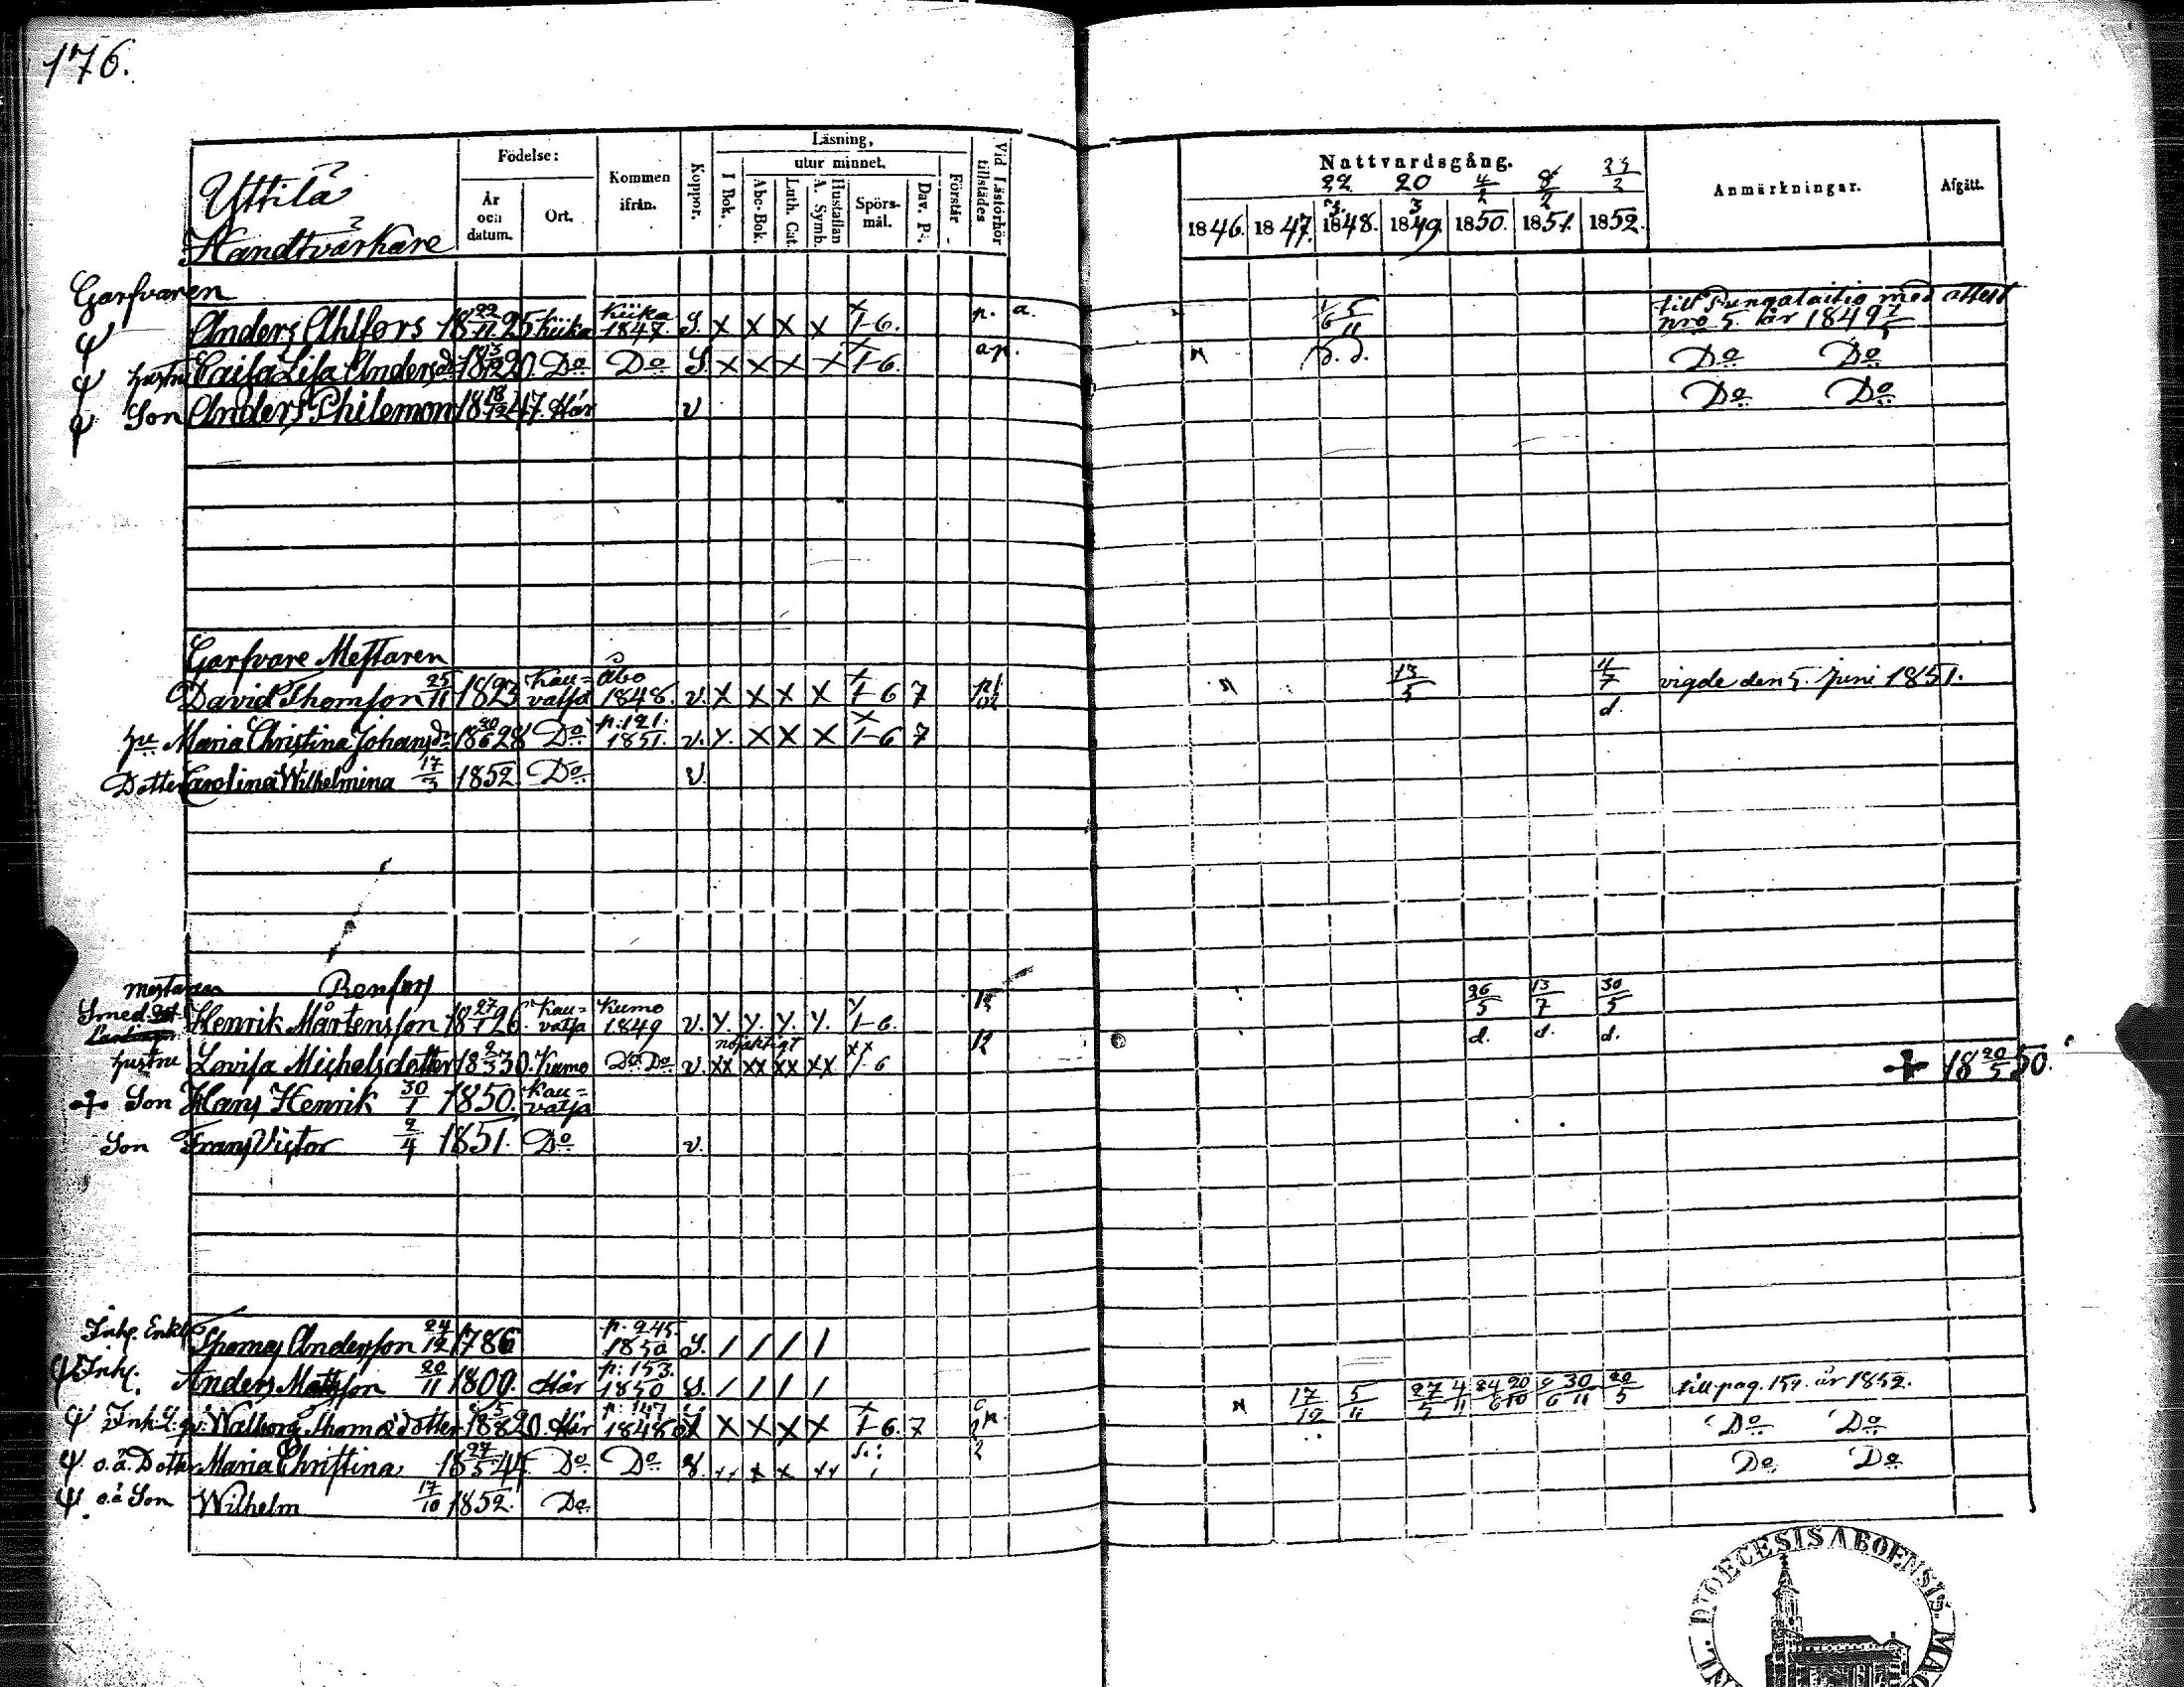 176.
Yttilä
Handtvärkare
Födelse:
År och datum.
Ort.
Kommen ifrån.
Koppor.
Läsning,
utur minnet.
I Bok.
Abc-Bok.
Luth. Cat.
A. Symb. Hustaflan
Spörs-mål.
Dav. Ps.
Förstår
Vid Läsförhör tillstädes
Nattvardsgång.
22 20 4/2 8/2 22/2
1846. 1847. 1848. 1849. 1850. 1851. 1852.
Anmärkningar.
Afgått.
Garfvaren
Anders Ahlfors 18 22/11 25 Kiika Kiika 1847. S. x x x x 1-6. p. a. till Pungalaitio med attest nro 5. år 1849
hustru Caisa Lisa Andersd: 1820. Do Do S. x x x x 1-6. a.p. Do Do
Son Anders Philemon 18 18/12 47. Här v Do Do
Garfvare Mestaren
David Thomsson 25/11 1823 Kau=vatsa Åbo 1848. v. x x x x 1-6 7 13/5 11/7 vigde den 5. Juni 1851.
d.
hu Maria Christina Johansdr 18 30/6 28 Do p. 121. 1851. v. y. x x x 1-6 7
Dotter Carolina Wilhelmina 17/3 1852. Do v.
Mestaren Renfors
Smed
Henrik Mårtensson 18 27/1 26. Kau=vatsa Kumo 1849 v. y. y. y. y. 1-6. 12 26/5 13/7 30/5
nöjaktigt d. d. d.
hustru Lovisa Michelsdotter 1830. Kumo Do Do v. xx xx xx xx 1-6 12
Son Hans Henrik 30/1 1850. Kau=vatsa + 18 20/5 50.
Son Frans Victor 2/4 1851. Do v.
Inh. Enkl. Thomas Andersson 24/12 1786 p. 245. 1850 S. / / / /
Inh. Anders Matsson 20/11 1809. Här p. 153. 1850 S. / / / / 17/12 5/11 27/5 4/11 24/6 20/10 9/6 30/11 20/5 till pag. 159. år 1852.
Walborg Thomædotter 1820. Här p. 147 1848 x x x x 1-6. 7 Do Do
o.ä. Dotter Maria Christina 18 27/5 44. Do Do Do Do
o.ä Son Wilhelm 17/10 1852. Do
DIOECESIS ABOENSIS. MAG